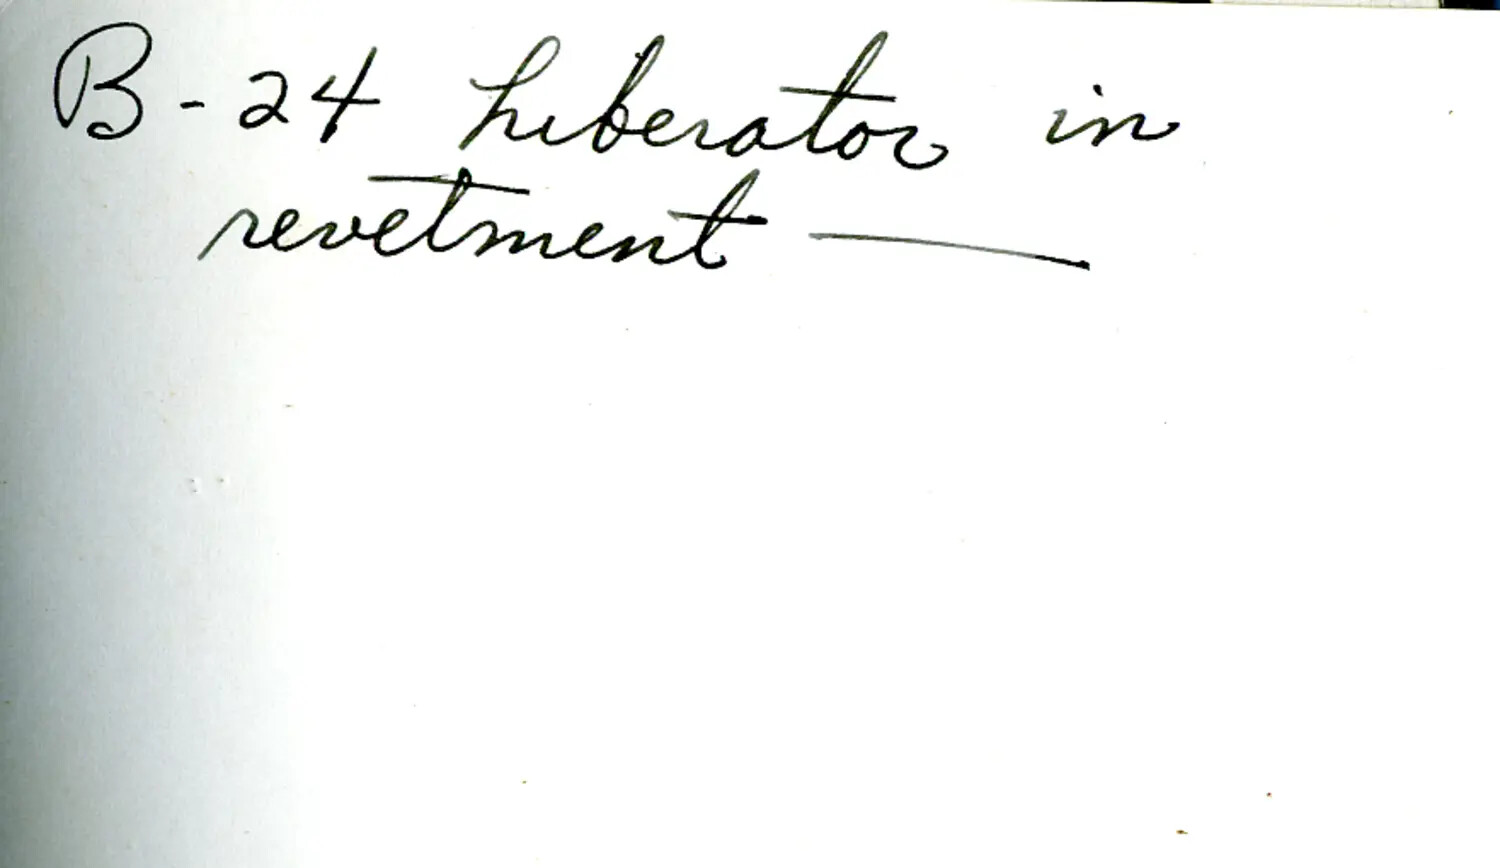 B-24 Liberator in
revetment —